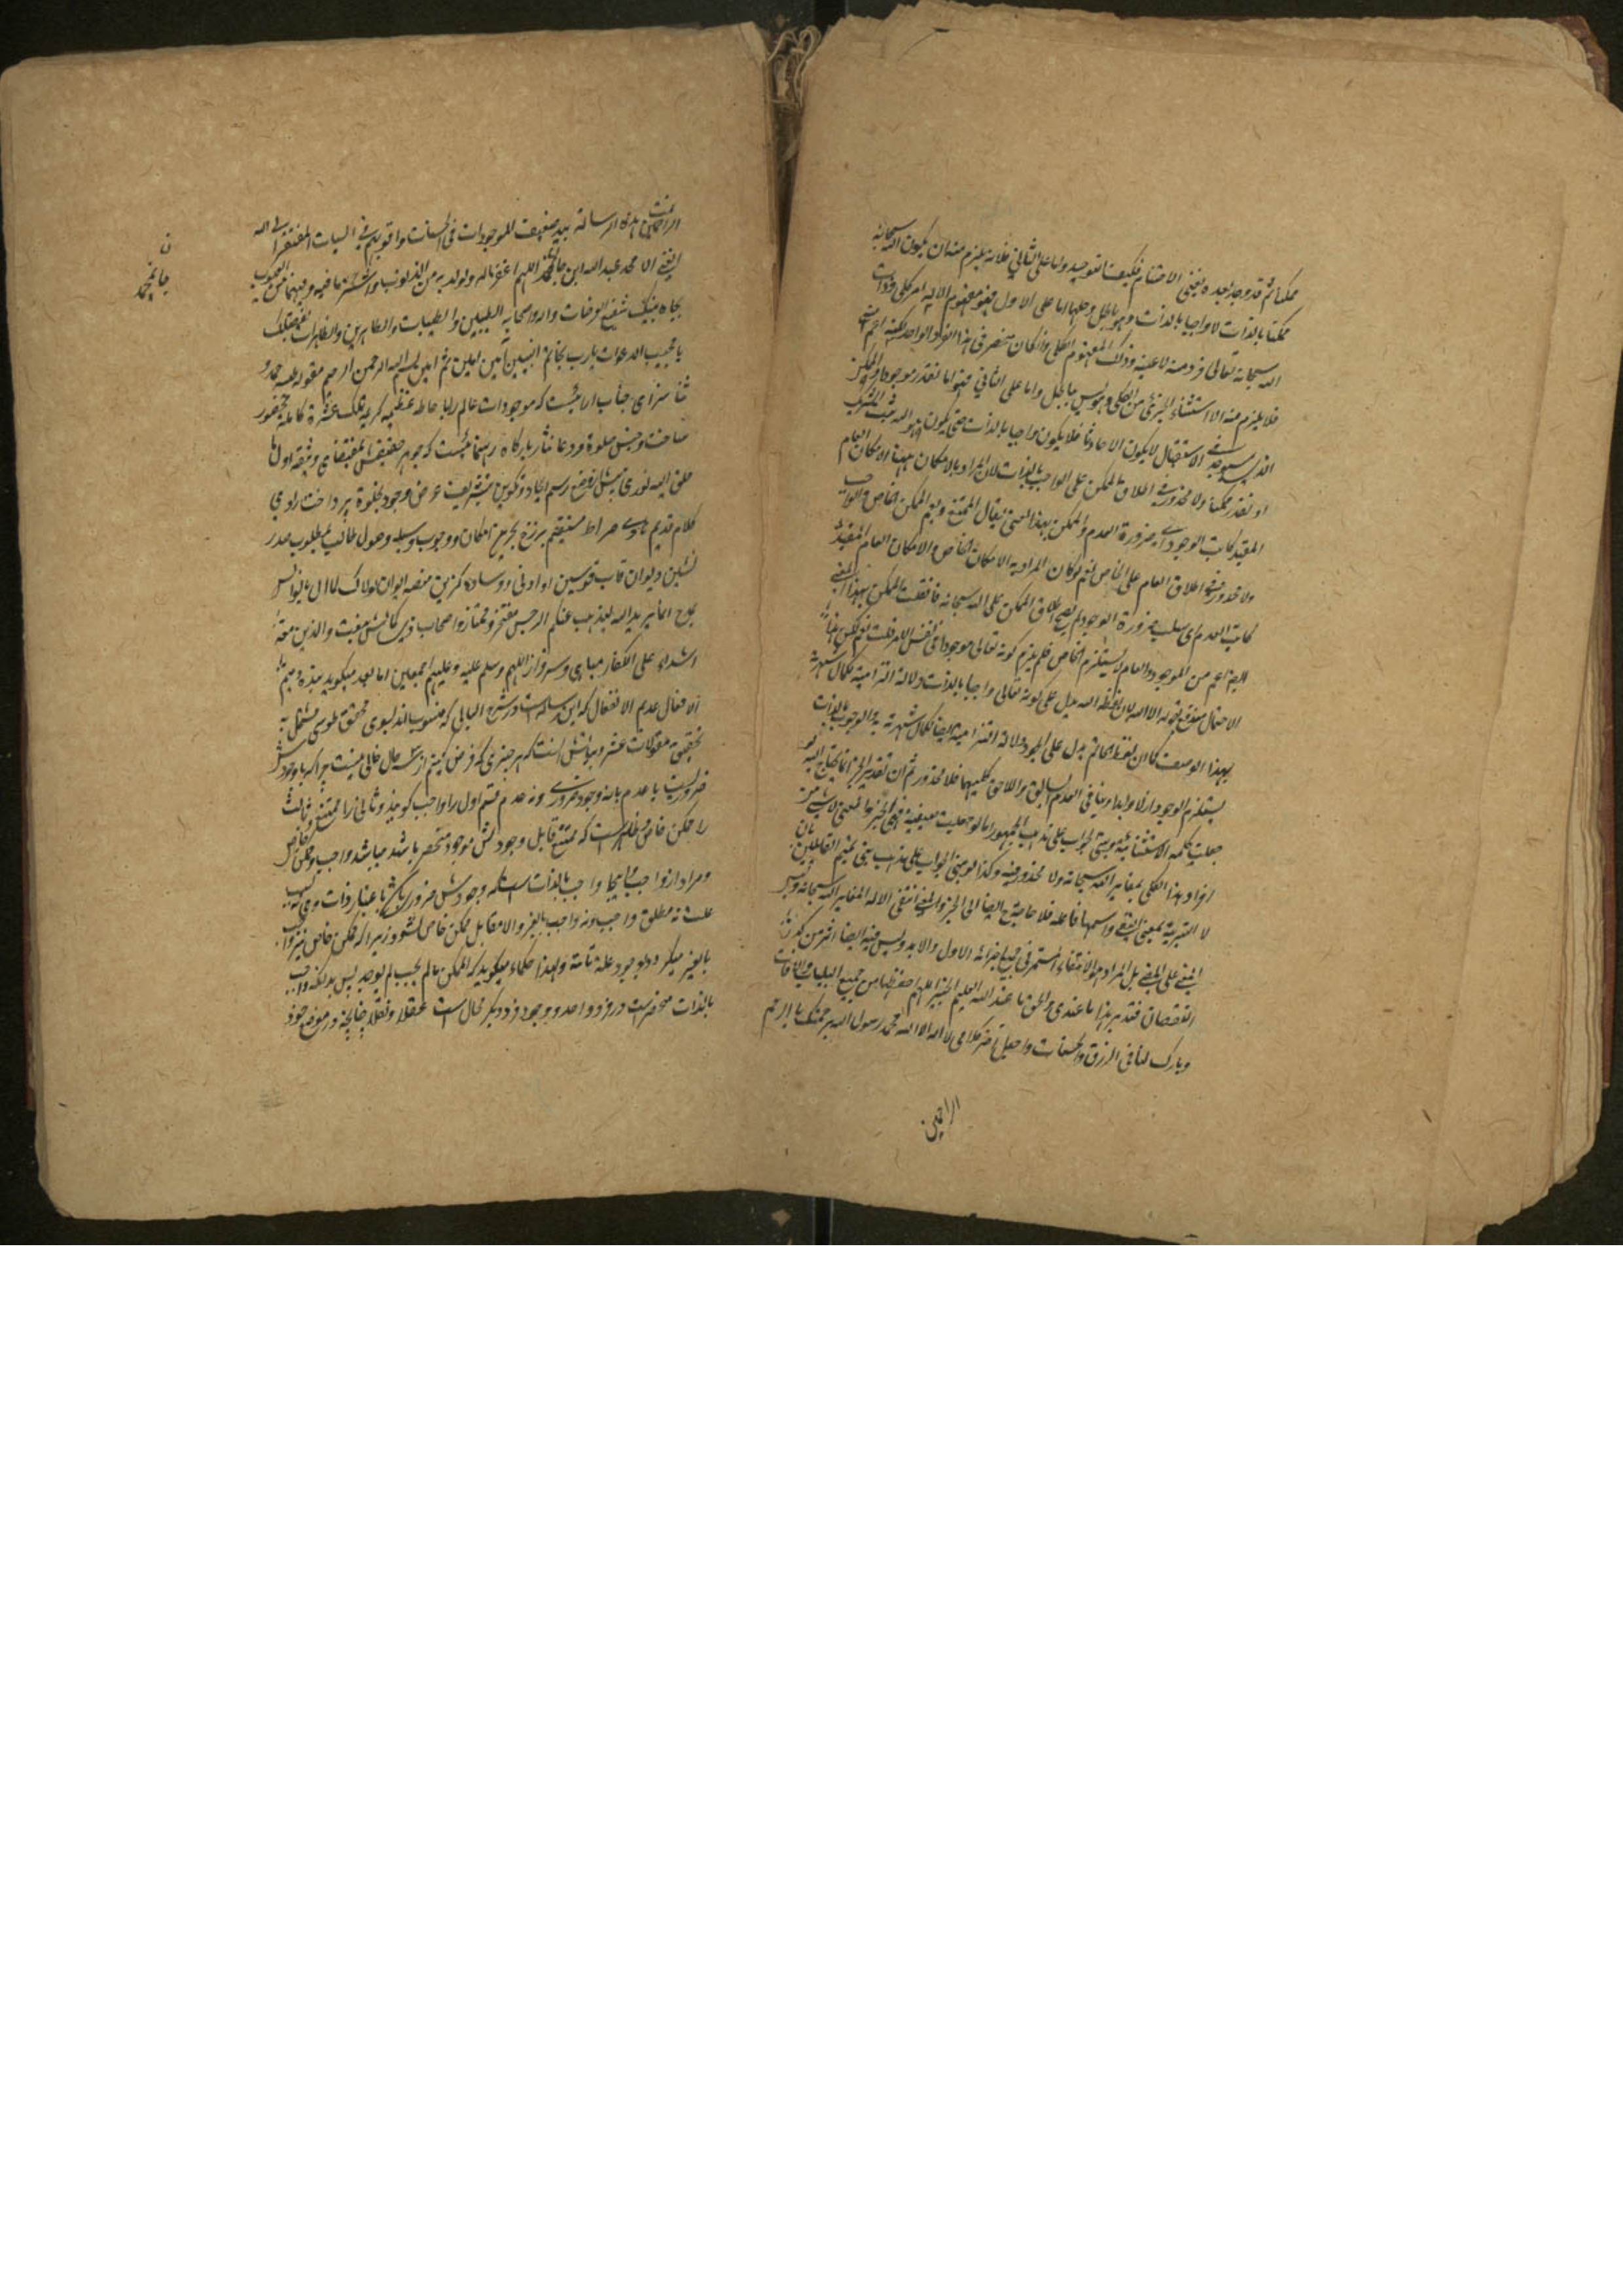 ممكنا ثم قد وجد بعده بعض الاصنام فكيف التوحيد واما على الثاني فلانه يلزم منه ان يكون الله سبحانه
ممكنا بالذات لا واجبا بالذات وهو باطل وحلها اما على الاول فهو مفهوم الاله امر كلي وذات
الله سبحانه تعالى فرد منه لا عينه وذلك المفهوم الكلي وان كان منحصر في هذا الفرد الواحد لكنه اعم
فلا يلزم منه الا استثناء الجزئي من الكلي وهو ليس بباطل واما على الثاني فهو اما نقدر موجودا والممكن
الذي سيوجد في الاستقبال لا يكون الا حادثا فلا يكون واجبا بالذات حتى يكون
او نقدر ممكنا ولا محذور في اطلاق الممكن على الواجب بالذات لان المراد بالامكان ههنا الامكان العام
المقيد بجانب الوجود اي ضرورة العدم والممكن بهذا المعنى يقال الممتنع ويعم الممكن الخاص والواجب
ولا محذور في اطلاق العام على الخاص نعم لو كان المراد به الامكان الخاص والامكان العام المقيد
بجانب العدم اي سلب ضرورة الوجود لم يصح اطلاق الممكن على الله سبحانه فان قلت الممكن بهذا المعنى
ايضا اعم من الموجود والعام لا يستلزم الخاص فلم يلزم كونه تعالى موجودا في نفس الامر قلت نعم لكن هذا
الاحتمال مندفع بقوله الا الله لان لفظة الله يدل على كونه تعالى واجبا بالذات دلالة التزامية لكمال شهرته
بهذا الوصف كما ان لفظ الحاتم يدل على الجود دلالة التزامية ايضا لكمال شهرته به والوجوب بالذات
يستلزم الوجود ازلا وابدا وينافي العدم السابق واللاحق كليهما فلا محذور ثم ان تقدير الخبر انما يحتاج اليه
جعلت كلمة الا استثنائية وبنيت الجواب على مذهب الجمهور اما لو جعلت بمعنى غير لا شيء من
افراد هذا الكلي بمغاير الله سبحانه ولا محذور فيه وكذا لو بنى الجواب على مذهب بني تميم القائلين بان
لا التبرئة بمعنى انتفى واسمها فاعله فلا حاجة ح ايضا الى الخبر والمعنى انتفى الاله المغاير الله سبحانه وليس
المعنى على المضي بل المراد هو الانتفاء المستمر في جميع اجزائه الاول والابد وليس فيه ايضا
النقصان فتدبر هذا ما عندي والحق ما عند الله العليم الخبير اللهم احفظنا من جميع البليات والافات
وبارك لنا في الرزق والحسنات واجعل اخر كلامي لا اله الا الله محمد رسول الله برحمتك يا ارحم
الراحمين
الراحمين تمت هذه الرسالة بيد ضعيف الموجودات في الحسنات واقويهم في السيات المفتقر الى الله
الغني الا محمد عبد الله ابن جان محمد اللهم اغفر له ولوالديه من الذنوب واستر ما فيه وفيهما من العيوب
بجاه نبيك شفيع العرصات واله واصحابه الطيبين والطيبات والطاهرين والطاهرات بفضلك
يا مجيب الدعوات يا رب بخاتم النبيين آمين آمين ثم آمين بسم الله الرحمن الرحيم مقوله حمد و
ثنا سزاي جناب الاهيست كه موجودات عالم را باحاطه عظيمه كريمه تلك عشرة كامله بحضور
ساخت وجنس صلوة و دعا نثار بارگاه رهنمائيست كه جوهر حقيقتش بمقتضاي وثيقه اول ما
خلق الله نوري بيش از وضع رسم ايجاد و تكوين بتشريف عرض وجود بجلوه پرداخت راوي
كلام قديم هادي صراط مستقيم برزخ بحرين امكان و وجوب وسيله وصول طالب بمطلوب صدر
نشين ديوان قاب قوسين او ادنى و وساده گزين منصه ايوان لولاك لما
بمدح انما يريد الله ليذهب عنكم الرجس مفتخر و ممتاز و اصحاب وي كه بمنقبت والذين معه
اشداء على الكفار مباهي و سرفراز اللهم وسلم عليه وعليهم اجمعين اما بعد ميگويد بنده
الافعال عديم الانفعال كه اين رساله است در شرح ابياتي كه منسوب اند بسوي محقق طوسي مشتمل به
تحقيق مقولات عشر و بيانش آنست كه هر چيزي كه فرض كنيم از سه حال خالي نيست چرا كه يا وجودش
ضروريست يا عدم يا نه وجود ضروري و نه عدم قسم اول را واجب گويند و ثاني را ممتنع و ثالث
را ممكن خاص و ظاهر است كه ممتنع قابل وجود نيست موجود منحصر باشد ميباشد واجب و ممكن خاص
ومراد از واجب اينجا واجب بالذات است كه وجودش ضروري باشد باعتبار ذات وي نه بسبب
علت نه مطلق واجب و نه واجب بالغير والا مقابل ممكن خاص نشود زيرا كه ممكن خاص نيز واجب
بالغير ميگردد بوجود علة تامه و لهذا حكماء ميگويند كه الممكن ما لم يجب لم يوجد پس بدانكه واجب
بالذات منحصر است در فرد واحد و وجود فرد ديگر محال است عقلا و نقلا چنانچه در موضع خود
ن
جان محمد